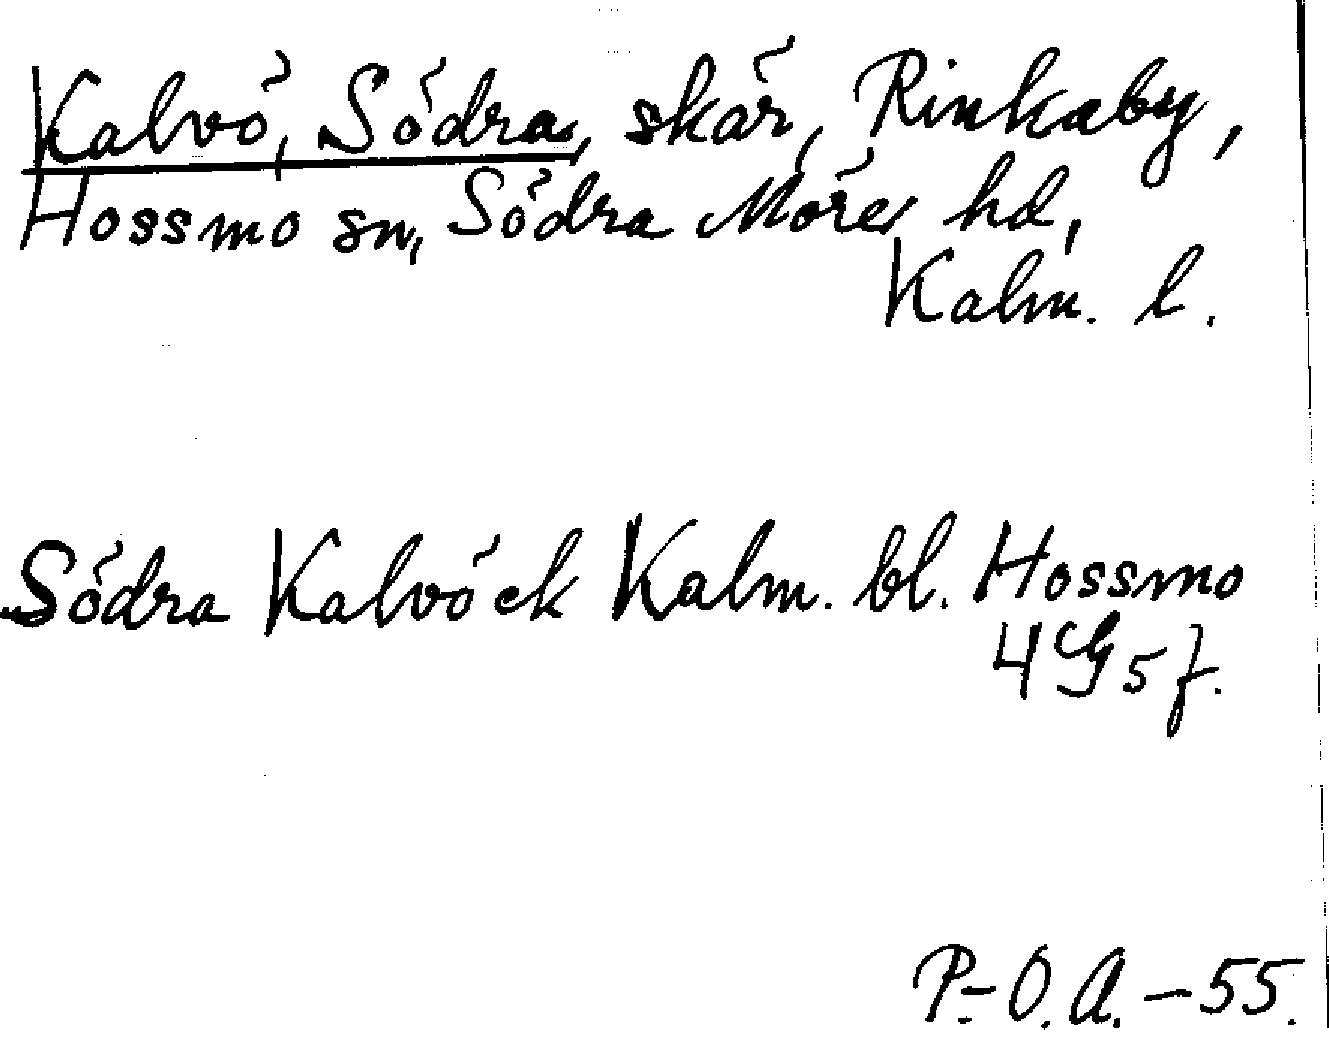 Kalvö, Södra, skär, Rinkaby,
Hossmo sn, Södra Möre hd,
Kalm. l.
Södra Kalvöck Kalm. bl. Hossmo
4 G 5 f.
P.-O. A. - 55.